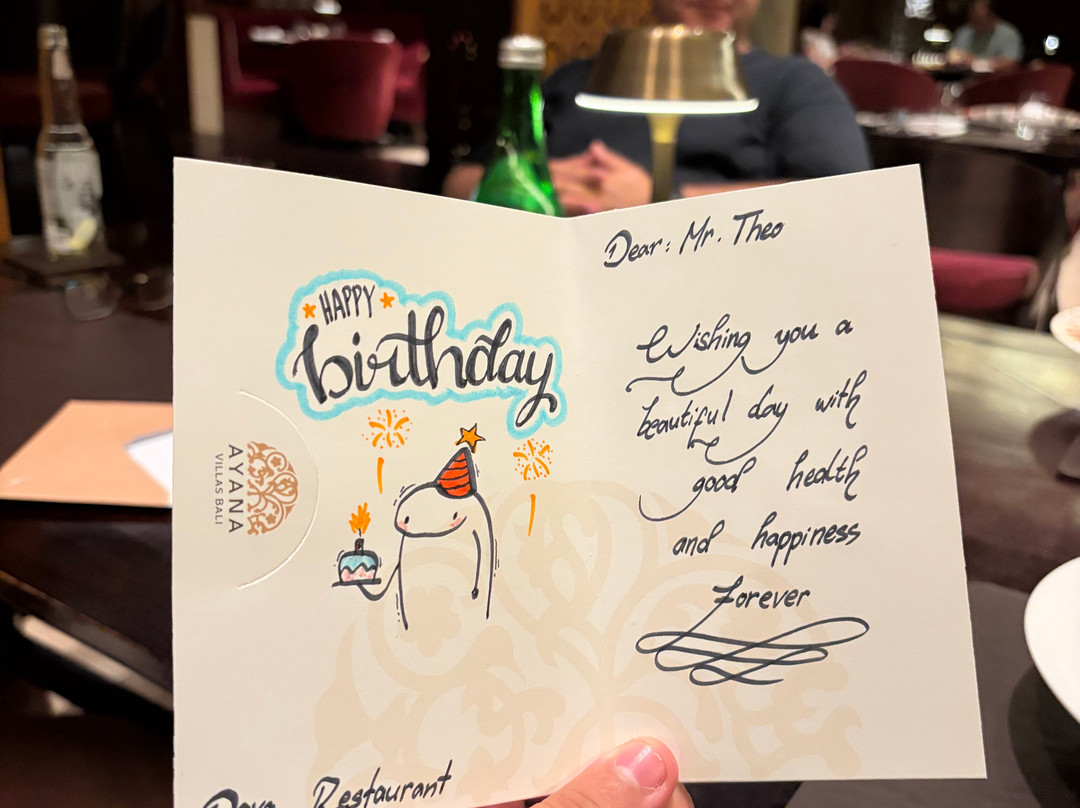 HAPPY
birthday
AYANA
VILLAS BALI
Restaurant
Dear: Mr. Theo
Wishing you a
beautiful day with
good health
and happiness
Forever